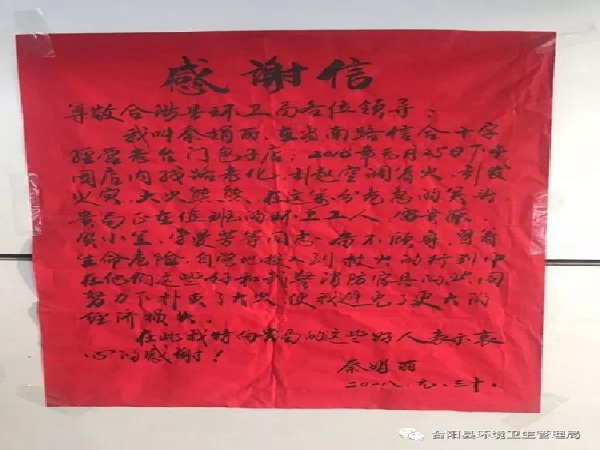 感谢信
尊敬合阳县环卫局各位领导：
我叫秦娟丽，在省南路信合十字
经营老台门包子店；2018年元月25日下午
因店内线路老化，引起空调着火，引发
火灾，大火熊熊，在这万分危急的关头
贵局正在值班的环卫工人
小
生命危险，自觉地投入到救火的行列中
在他们这些好和武警消防官兵的共同
努力下扑灭了大火，使我避免了更大的
经济损失。
在此我特份贵局的这些好人表示衷
心的感谢！
秦娟丽
二〇〇八、元、三十、
合阳县环境卫生管理局